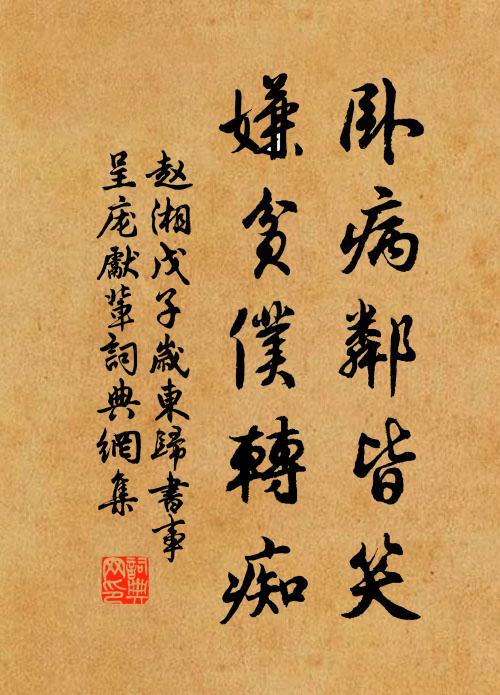 卧病鄰皆笑
嫌貧僕轉痴
赵湘戊子歲東歸書事
呈庞獻輩詞典網集
詞典网印